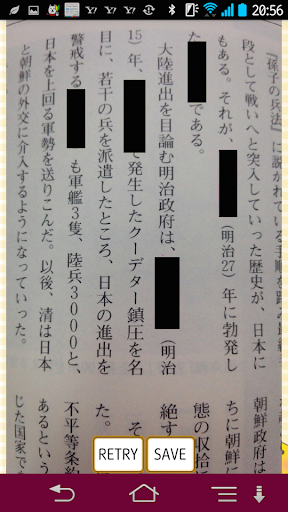 20:56
『孫子の兵法』に説かれている手順を踏み
段として戦いへと突入していった歴史が、日本に
もある。それが、(明治27)年に勃発し
たである。
大陸進出を目論む明治政府は、(明治
15)年、で発生したクーデター鎮圧を名
目に、若干の兵を派遣したところ、日本の進出を
警戒するも軍艦3隻、陸兵3000と、
日本を上回る軍勢を送りこんだ。以後、清は日本
と朝鮮の外交に介入するようになっていった。
朝鮮政府は
ちに朝鮮に
態の収拾
絶す
そ
た。
不平等条約
あるという
じた国家で
RETRY
SAVE